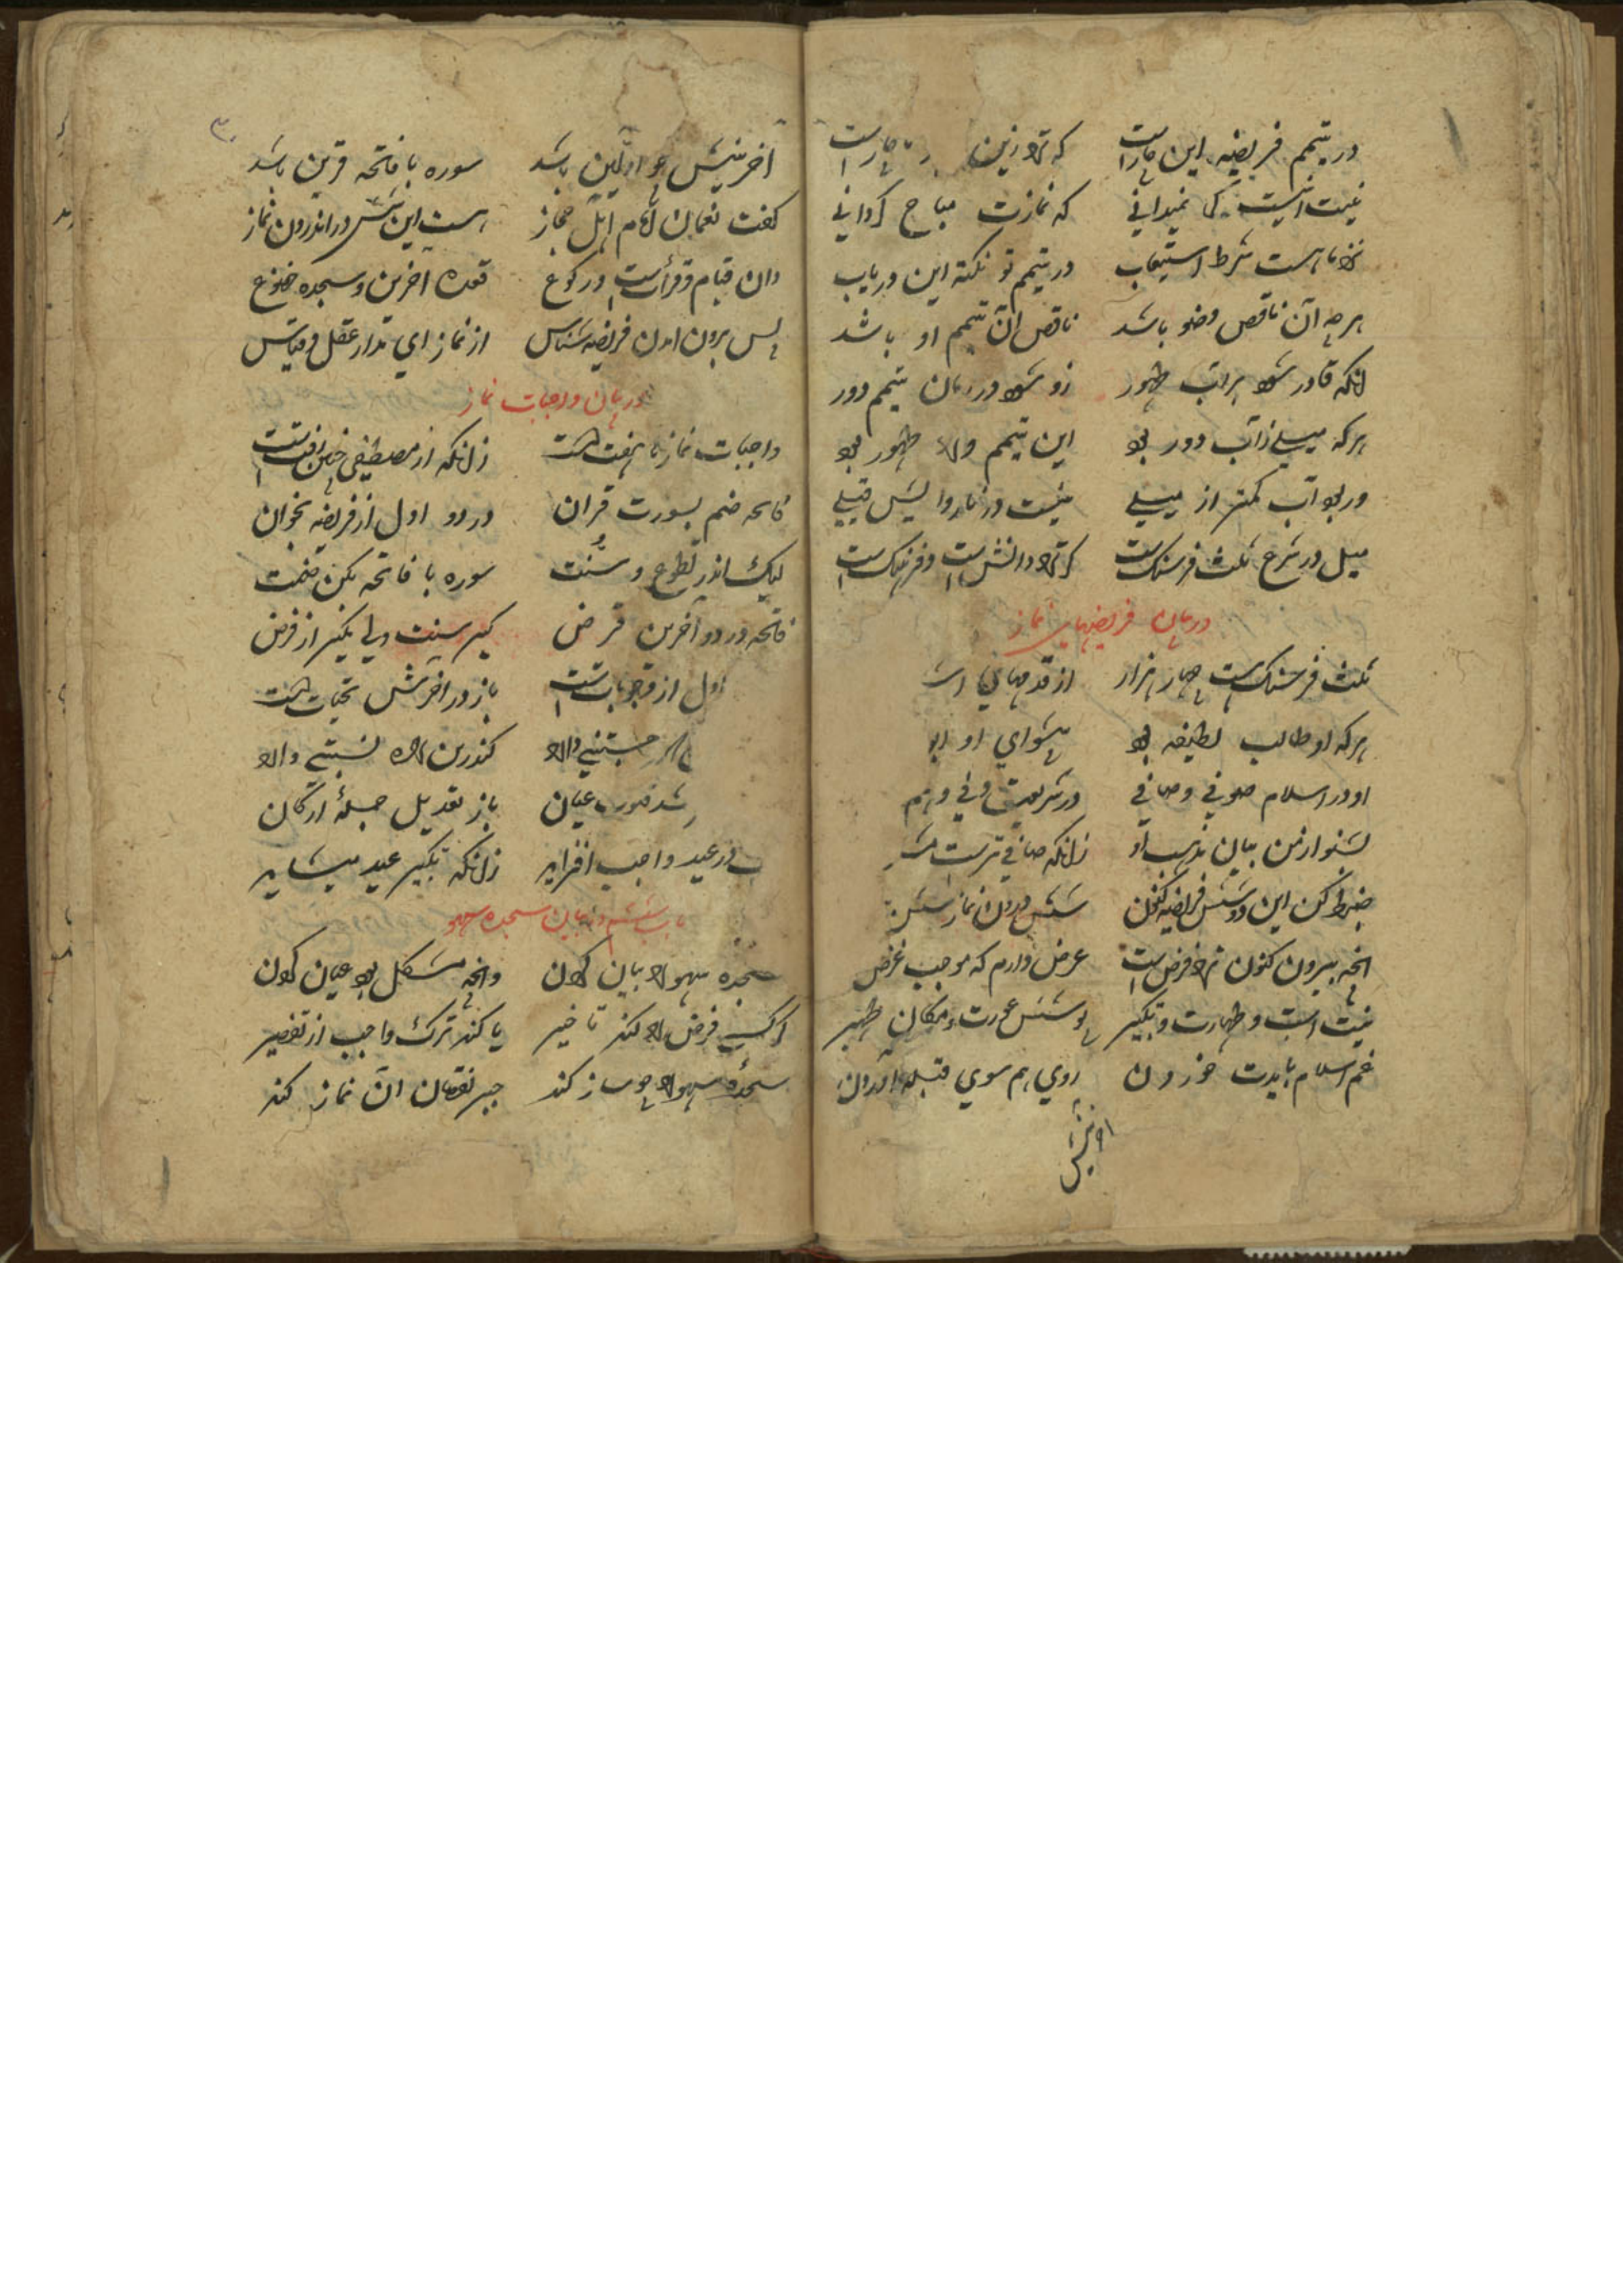 در تیمم فریضه این چارست که ترا زین چارست
نیت اینست کر نمیدانی که نمازت مباح کردانی
نزد ما هست شرط استیعاب در تیمم تو نکته این دریاب
هرچه آن ناقص وضو باشد ناقص آن تیمم او باشد
انکه قادر شود براب طهور زو شود در زمان تیمم دور
هرکه میلی ز آب دور بود این تیمم ورا طهور بود
ور بود آب کمتر از میلی نیست در ما روا پس قیلی
میل در شرع ثلث فرسنک است کر ترا دانش است و فرهنک است
در بیان فریضهای نماز
ثلث فرسنک است چار هزار از قدمهای
هرکه او طالب لطیفه بود پیشوای او
او در اسلام صوفی و صافی در شریعت
بشنو از من بیان مذهب او زانکه صافی ترست
ضبط کن این دو شش فریضه کنون شش درون نماز شش
انچه بیرون کنون ترا فرض است عرض دارم که موجب غرض
نیت است و طهارت و تکبیر پوشش عورت و مکان طهیر
غم اسلام بایدت خوردن روی هم سوی قبله آوردن
اخرینش
اخرینش چو اولین باشد سوره با فاتحه قرین باشد
کفت نعمان امام اهل حجاز هست این شش در اندرون نماز
دان قیام و قرأست و رکوع قعده اخرین و سجده خضوع
پس برون امدن فریضه شناس از نماز ای مدار عقل و قیاس
در بیان واجبات نماز
واجبات نماز ما هفت است زانکه از مصطفی چنین رفت است
فاتحه ضم بسورت قران در دو اول از فریضه بخوان
لیک اندر تطوع و سنت سوره با فاتحه بکن ضمت
فاتحه در دو آخرین فرض کیر سنت ولی مکیر از فرض
اول از واجبات باز در اخرش تحیات است
کندرین راه نسبتی دارد
شد عیان باز تعدیل جملهٔ ارکان
در عید واجب افزاید زانکه تکبیر عید میشاید
باب ششم در بیان سجده سهو
سجده سهو را بیان کردن وانچه مشکل بود عیان کردن
کر کسی فرض را کند تاخیر یا کند ترک واجب از تقصیر
سجدهٔ سهو را چو ساز کند جبر نقصان ان نماز کند